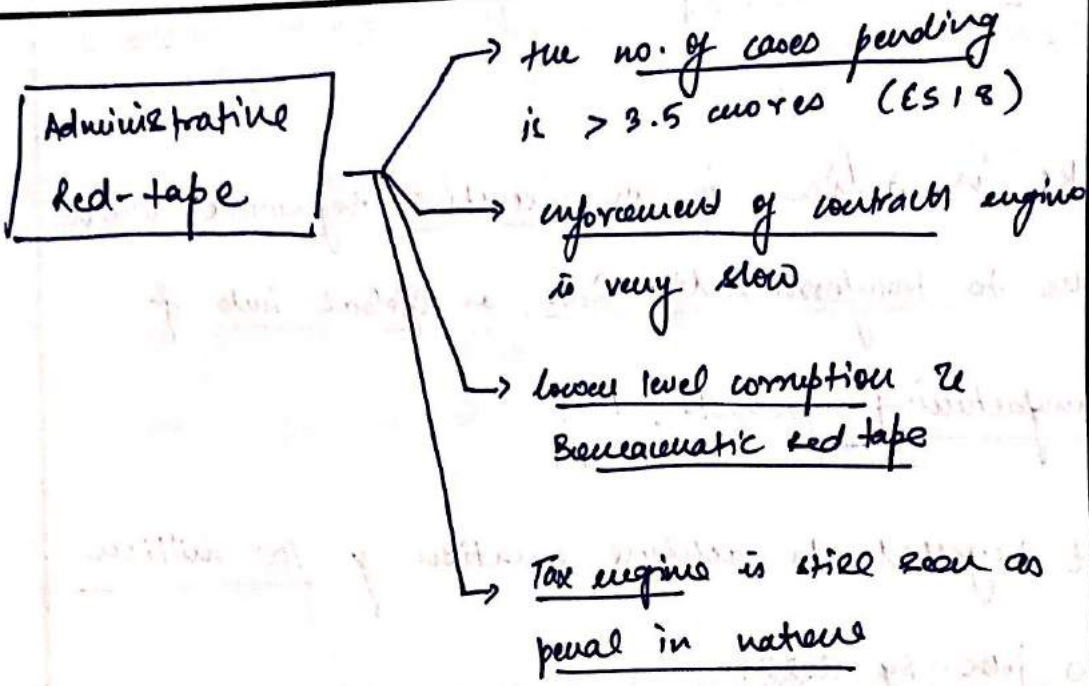 Administrative
Red-tape
the no. of cases pending
is > 3.5 crores (ES18)
enforcement of contracts engine
is very slow
lower level corruption &
Bureaucratic red tape
Tax engine is still seen as
penal in nature